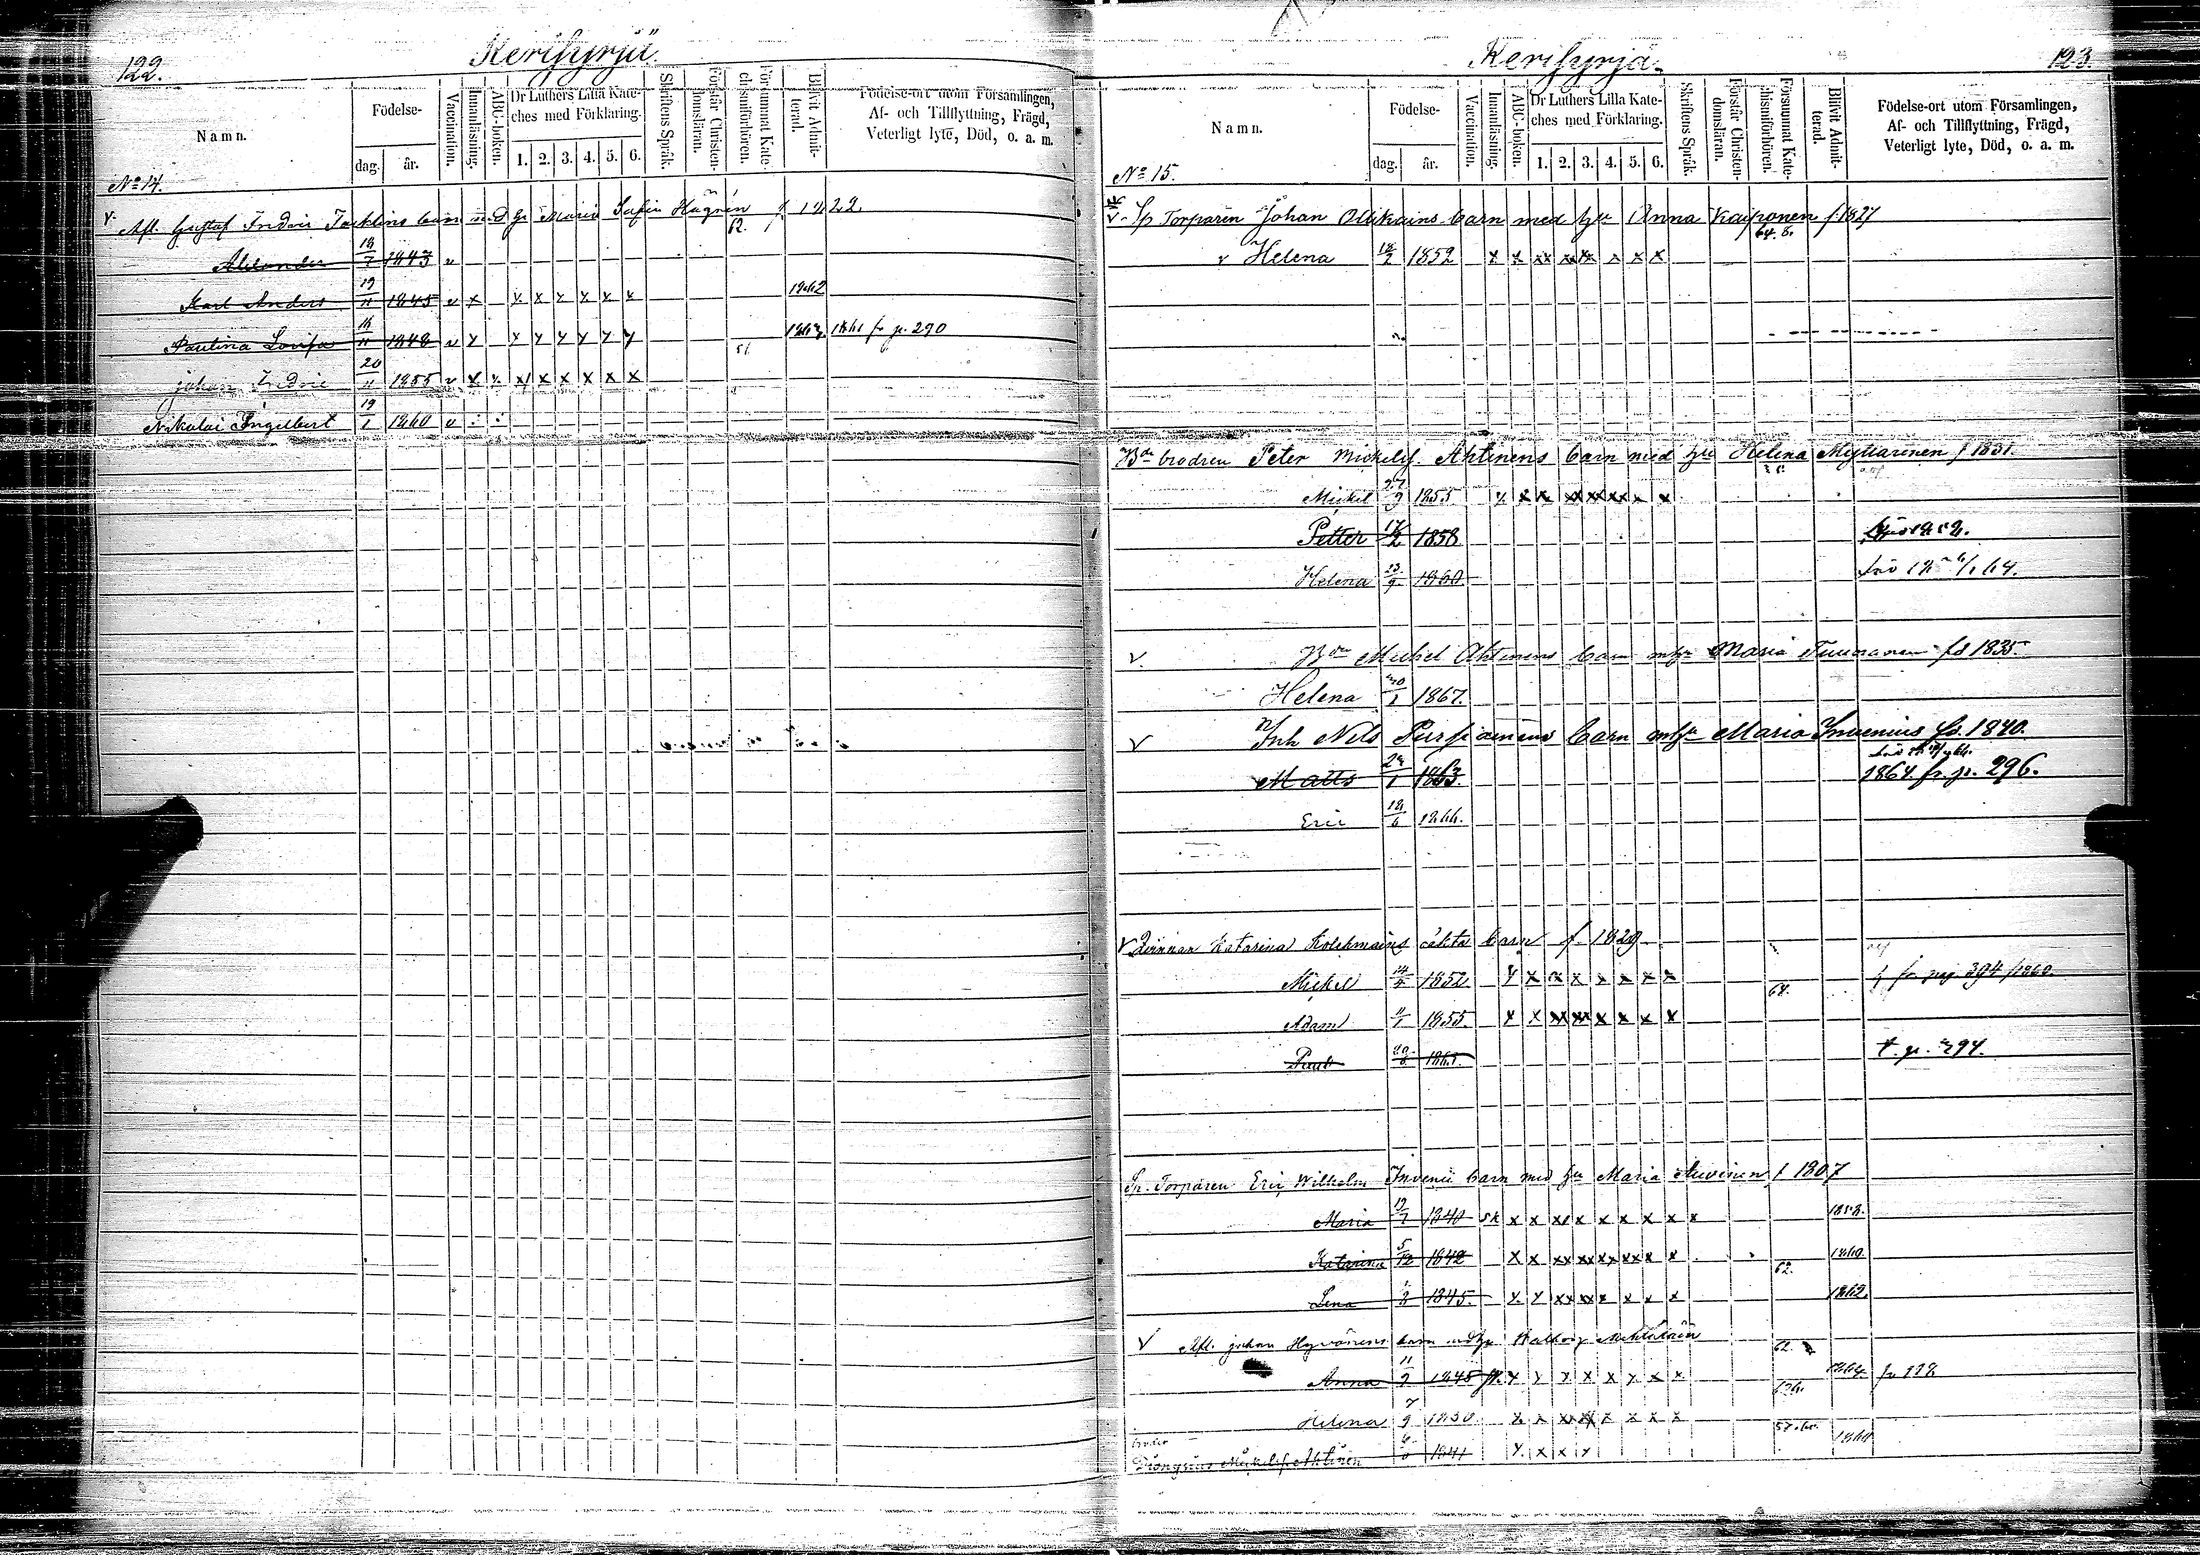 122.
Kerisyrjä.
Namn.
Födelse-
dag.
år.
Vaccination.
Innanläsning.
ABC-boken.
Dr Luthers Lilla Kate-
ches med Förklaring.
1. 2. 3. 4. 5. 6.
Skriftens Språk.
Förstår Christen-
domsläran.
Försummat Kate-
chismiförhören.
Blifvit Admit-
terad.
Födelse-ort utom Församlingen,
Af- och Tillflyttning, Frägd,
Veterligt lyte, Död, o. a. m.
No 14.
v. Afl. Gustaf Fredric barn med h. Maria Sofia Hagrén f. 1822
62.
Alexander 18/7 1843 v
Karl Anders 19/11 1845 v x x x x x x x 1862
Paulina Lovisa 16/11 1848 v x x x x x x x 1863 1861 fr p. 290
51.
Johan Fredric 20/11 1855 v x x x x x x x x
Nikolai Ingelbert 19/1 1860 v
123.
Kerisyrjä.
Namn.
Födelse-
dag.
år.
Vaccination.
Innanläsning.
ABC-boken.
Dr Luthers Lilla Kate-
ches med Förklaring.
1. 2. 3. 4. 5. 6.
Skriftens Språk.
Förstår Christen-
domsläran.
Försummat Kate-
chismiförhören.
Blifvit Admit-
terad.
Födelse-ort utom Församlingen,
Af- och Tillflyttning, Frägd,
Veterligt lyte, Död, o. a. m.
No 15.
v. Sp Torparen Johan Ollikains barn med hu Anna Kaiponen f. 1827
64. 8.
v Helena 18/2 1852 x x xx xx xx x x x
Bde brodren Peter Mickelss. Ahtinens barn med hu Helena Myttarinen f 1831.
Mickel 27/9 1855 x x x xx xx xx x x
Petter 17/2 1858
Helena 23/9 1860
v. Bde Mickel Ahtinens barn m hu Maria Turunen fd 1835
Helena 20/1 1867.
v Inh Nils Pursiainens barn m hu Maria Invenius fd. 1840.
Matts 28/1 1863. 1864 fr p. 296.
Eric 18/6 1866.
v Qvinnan Katarina Kolehmains oäkta barn f. 1829
Mickel 1852 x x x x x x x x fr pag 394 1860.
64.
Adam 11/1 1855 x x xx xx x x x x
Paul 1865. t. p. 294.
Sp. Torparen Eric Wilhelm Invenii barn med hu Maria Auvinen f 1807
Maria 1840 sk x x xx x x x x x x 1858.
Katarina 5/12 1842 x x xx xx xx xx x x 1860.
62.
Lena 1845. x x xx xx x x x x 1862.
v Afl. Johan Hyvärins barn med hu
62.
Anna 11/9 1845 x x x x x x x x 1864 fr 118
Helena 7/9 1850 x x xx xx x x x x
broder
Dionysius Mickelss. Ahtinen 1841 x x x x